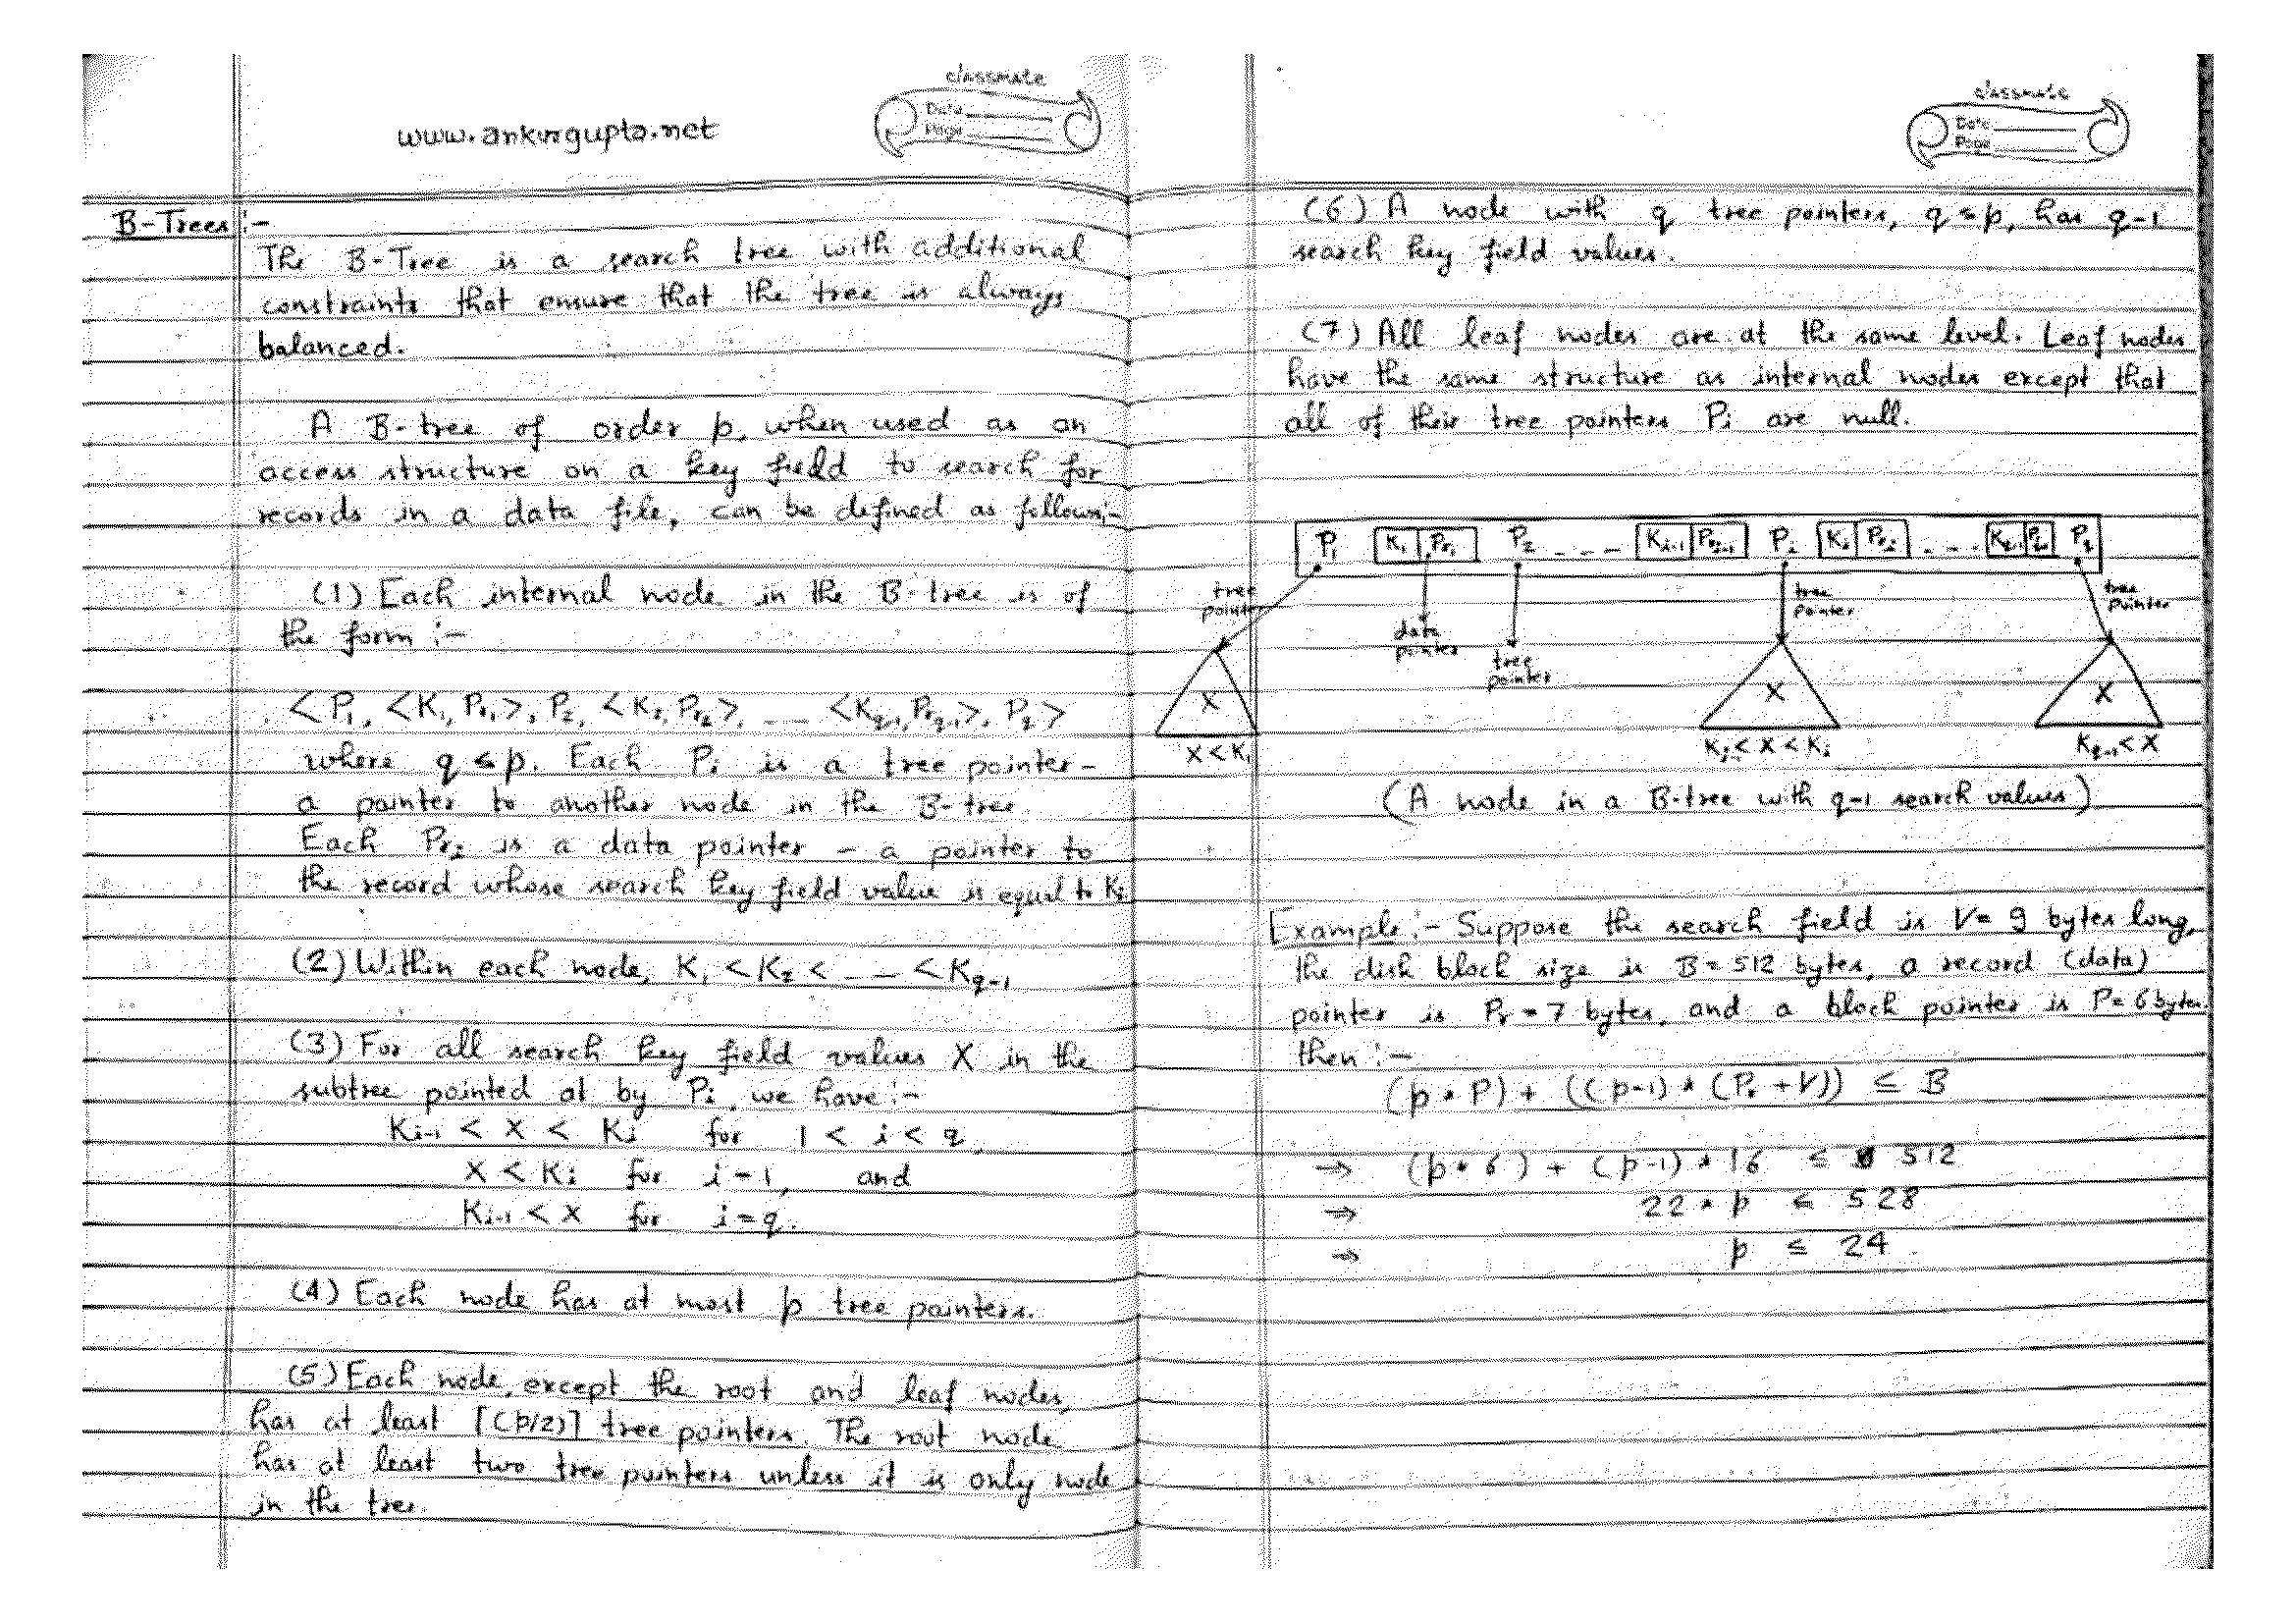 classmate
Date
Page
www.ankurgupta.net
B-Trees:-
The B-Tree is a search tree with additional
constraints that ensure that the tree is always
balanced.
A B-tree of order p, when used as an
access structure on a key field to search for
records in a data file, can be defined as follows:-
(1) Each internal node in the B-tree is of
the form :-
<P₁, <K₁, Pr₁>, P₂, <K₂, Pr₂>, ... <Kq-1, Prq-1>, Pq>
where q ≤ p. Each Pi is a tree pointer-
a pointer to another node in the B-tree
Each Pri is a data pointer - a pointer to
the record whose search key field value is equal to Ki
(2) Within each node, K₁ < K₂ < ... < Kq-1
(3) For all search key field values X in the
subtree pointed at by Pi, we have :-
Ki-1 < X < Ki for 1 < i < q,
X < Ki for i = 1, and
Ki-1 < X for i = q.
(4) Each node has at most p tree pointers.
(5) Each node, except the root and leaf nodes,
has at least ⌈(p/2)⌉ tree pointers. The root node
has at least two tree pointers unless it is only node
in the tree.
classmate
Date
Page
(6) A node with q tree pointers, q ≤ p, has q-1
search key field values.
(7) All leaf nodes are at the same level. Leaf nodes
have the same structure as internal nodes except that
all of their tree pointers Pi are null.
P₁ K₁ Pr₁ P₂ ---- Ki-1 Pri-1 Pi Ki Pri ---- Kq-1 Pq
tree pointer
data pointer
tree pointer
tree pointer
tree pointer
X X X
X < K₁ Ki-1 < X < Ki Kq-1 < X
(A node in a B-tree with q-1 search values)
Example:- Suppose the search field is V = 9 bytes long,
the disk block size is B = 512 bytes, a record (data)
pointer is Pr = 7 bytes, and a block pointer is P = 6 bytes
then :-
(p * P) + ((p-1) * (Pr + V)) ≤ B
⇒ (p * 6) + (p-1) * 16 ≤ 512
⇒ 22 * p ≤ 528
⇒ p ≤ 24